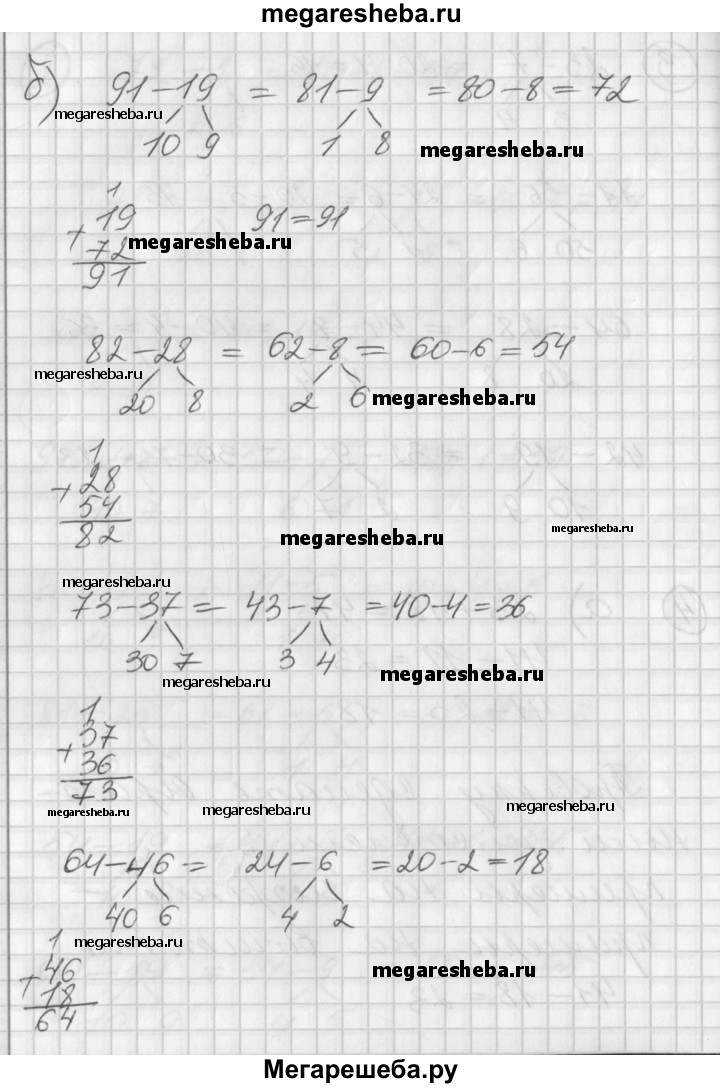 megaresheba.ru
б) 91-19 = 81-9 = 80-8 = 72
megaresheba.ru
10 9 1 8
megaresheba.ru
1
+ 19 91=91
megaresheba.ru
72
91
82-28 = 62-8 = 60-6 = 54
megaresheba.ru
20 8 2 6
megaresheba.ru
1
+ 28
54
82
megaresheba.ru
megaresheba.ru
megaresheba.ru
73-37 = 43-7 = 40-4 = 36
30 7 3 4
megaresheba.ru
megaresheba.ru
1
+ 37
36
73
megaresheba.ru
megaresheba.ru
megaresheba.ru
64-46 = 24-6 = 20-2 = 18
40 6 4 2
megaresheba.ru
1
+ 46
megaresheba.ru
18
64
Мегарешеба.ру